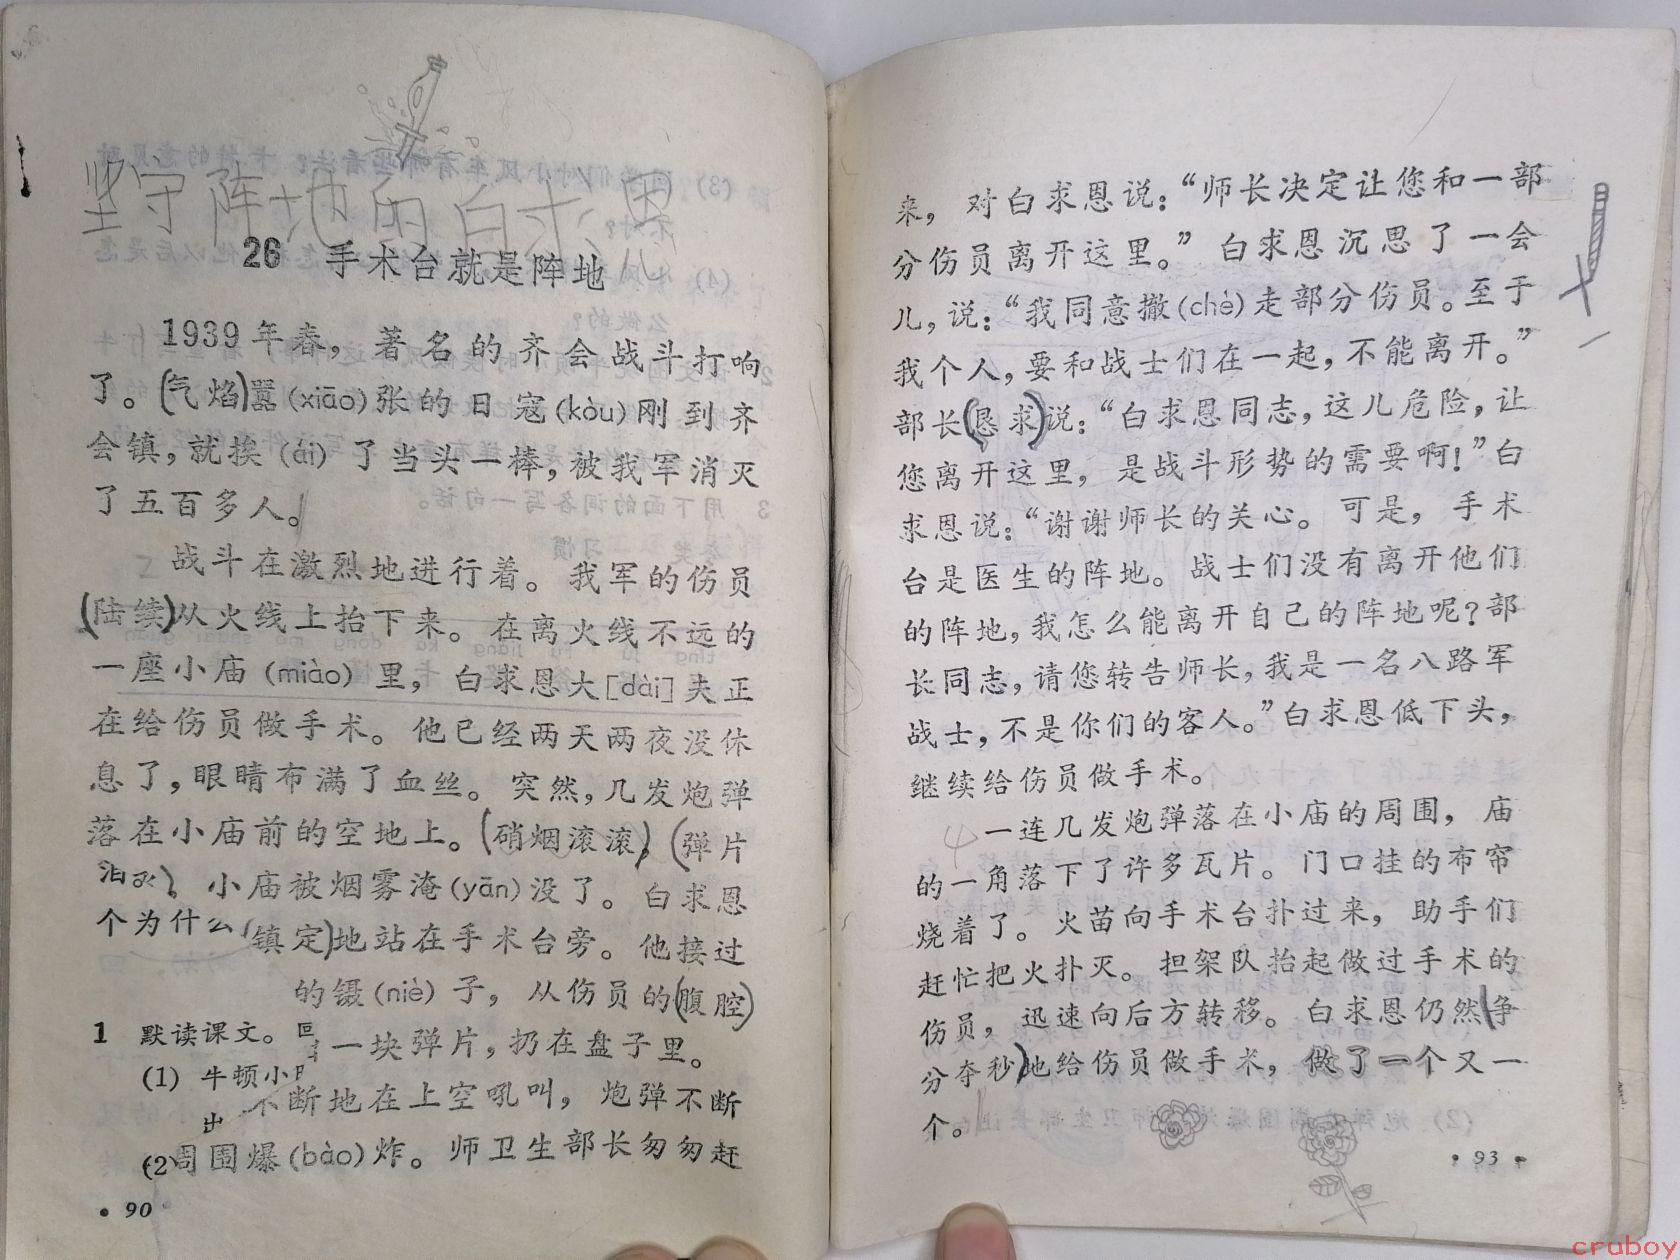 坚守阵地的白求恩
26 手术台就是阵地
1939年春，著名的齐会战斗打响
了。(气焰)嚣(xiāo)张的日寇(kòu)刚到齐
会镇，就挨(ái)了当头一棒，被我军消灭
了五百多人。
战斗在激烈地进行着。我军的伤员
(陆续)从火线上抬下来。在离火线不远的
一座小庙(miào)里，白求恩大[dài]夫正
在给伤员做手术。他已经两天两夜没休
息了，眼睛布满了血丝。突然，几发炮弹
落在小庙前的空地上。(硝烟滚滚)，(弹片
小庙被烟雾淹(yān)没了。白求恩
个为什么
(镇定)地站在手术台旁。他接过
的镊(niè)子，从伤员的(腹腔)
1 默读课文。回
一块弹片，扔在盘子里。
(1) 牛顿小时
不断地在上空吼叫，炮弹不断
出
(2
周围爆(bào)炸。师卫生部长匆匆赶
• 90
来，对白求恩说：“师长决定让您和一部
分伤员离开这里。”白求恩沉思了一会
儿，说：“我同意撤(chè)走部分伤员。至于
我个人，要和战士们在一起，不能离开。”
部长(恳求)说：“白求恩同志，这儿危险，让
您离开这里，是战斗形势的需要啊！”白
求恩说：“谢谢师长的关心。可是，手术
台是医生的阵地。战士们没有离开他们
的阵地，我怎么能离开自己的阵地呢？部
长同志，请您转告师长，我是一名八路军
战士，不是你们的客人。”白求恩低下头，
继续给伤员做手术。
一连几发炮弹落在小庙的周围，庙
的一角落下了许多瓦片。门口挂的布帘
烧着了。火苗向手术台扑过来，助手们
赶忙把火扑灭。担架队抬起做过手术的
伤员，迅速向后方转移。白求恩仍然(争
分夺秒)地给伤员做手术，做了一个又一
个。
• 93 •
cruboy